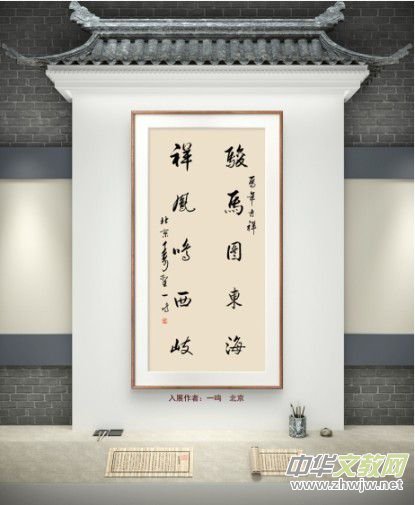 駿馬圖東海
年吉祥
祥鳳鳴西岐
北京
入展作者：一鸣 北京
中华文教网
www.zhwjw.net